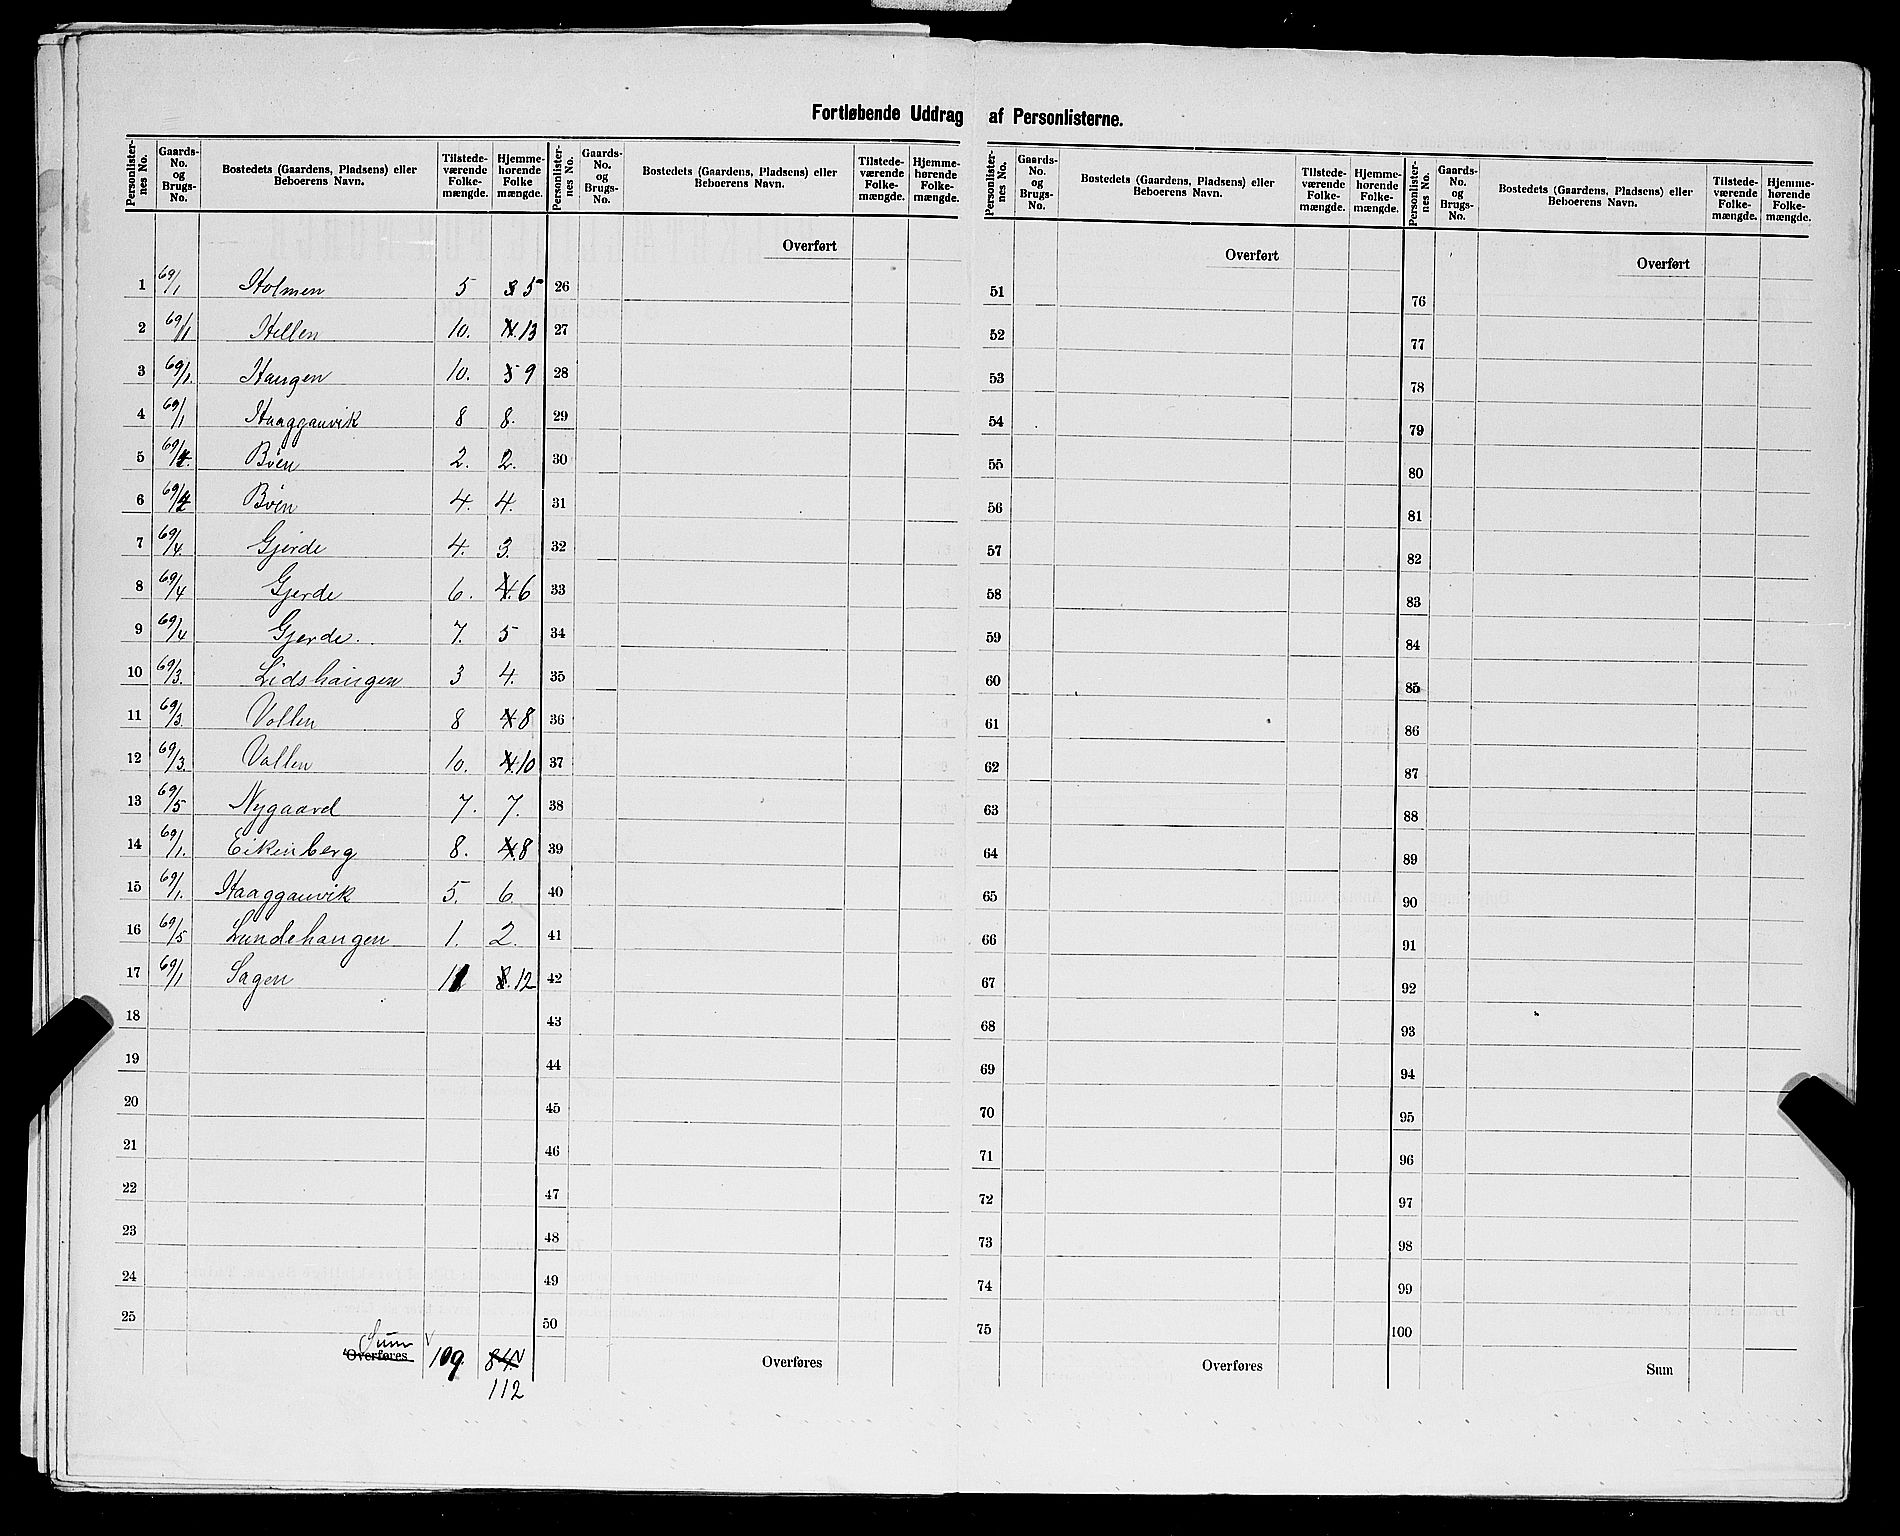 Fortløbende Uddrag af Personlisterne.
Personlister-nes No. | Gaards-No. og Brugs-No. | Bostedets (Gaardens, Pladsens) eller Beboerens Navn. | Tilstede-værende Folke-mængde. | Hjemme-hørende Folke mængde.
1 69/1 Holmen 5 8 5
2 69/1 Hellen 10. 4. 13
3 69/1. Haugen 10. 5 9
4 69/1 Haaggauvik 8 8.
5 69/2. Böen 2. 2.
6 69/2 Böen 4. 4.
7 69/4. Gjerde 4. 3.
8 69/4 Gjerde 6. 4. 6
9 69/4 Gjerde. 7. 5
10 69/3. Lidshaugen 3 4.
11 69/3. Vollen 8 4 8
12 69/3. Vollen 10. 4. 10
13 69/5 Nygaard 7. 7.
14 69/1. Eikenberg 8. 4. 8
15 69/1. Haaggauvik 5. 6.
16 69/5 Lundehaugen 1. 2.
17 69/1 Sagen 11 8. 12
18
19
20
21
22
23
24
25
Sum
Overføres 109. 84.
112
Personlister-nes No. | Gaards-No. og Brugs-No. | Bostedets (Gaardens, Pladsens) eller Beboerens Navn. | Tilstede-værende Folke-mængde. | Hjemme-hørende Folke-mængde.
Overført
26
27
28
29
30
31
32
33
34
35
36
37
38
39
40
41
42
43
44
45
46
47
48
49
50
Overføres
Personlister-nes No. | Gaards-No. og Brugs-No. | Bostedets (Gaardens, Pladsens) eller Beboerens Navn. | Tilstede-værende Folke-mængde. | Hjemme-hørende Folke-mængde.
Overført
51
52
53
54
55
56
57
58
59
60
61
62
63
64
65
66
67
68
69
70
71
72
73
74
75
Overføres
Personlister-nes No. | Gaards-No. og Brugs-No. | Bostedets (Gaardens, Pladsens) eller Beboerens Navn. | Tilstede-værende Folke-mængde. | Hjemme-hørende Folke-mængde.
Overført
76
77
78
79
80
81
82
83
84
85
86
87
88
89
90
91
92
93
94
95
96
97
98
99
100
Sum